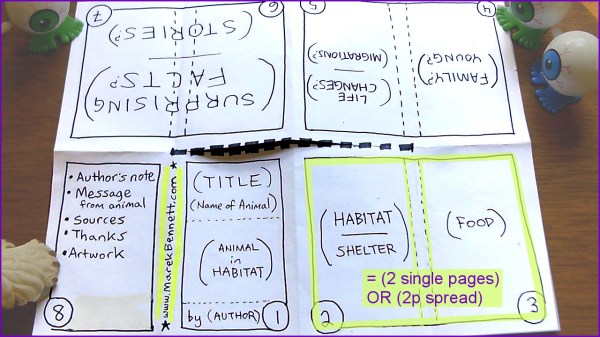 7
6
(STORIES?)
(SURPRISING
FACTS?)
5
4
(MIGRATIONS?)
(LIFE
CHANGES?)
(FAMILY?
YOUNG?)
• Author's note
• Message
from animal
• Sources
• Thanks
• Artwork
8
★ www.MarekBennett.com ★
(TITLE)
(Name of Animal)
(ANIMAL
in
HABITAT)
by (AUTHOR)
1
(HABITAT
SHELTER)
2
(FOOD)
3
= (2 single pages)
OR (2p spread)